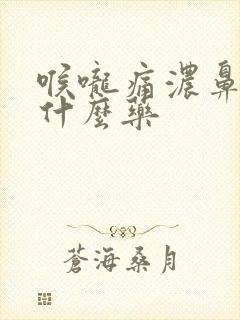 喉嚨痛濃鼻
什麼藥
蒼海桑月